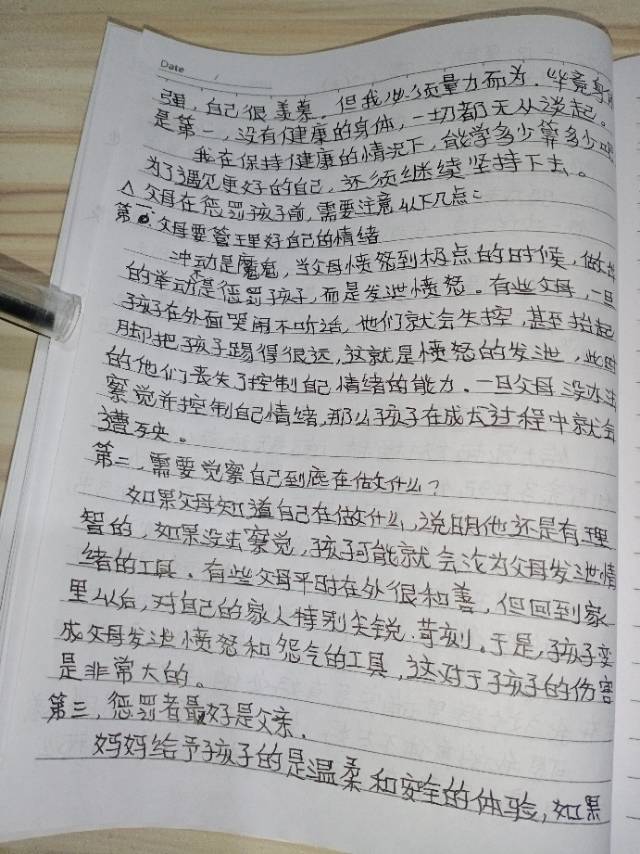 Date /
强，自己很羡慕。但我必须量力而为，毕竟身
是第一，没有健康的身体，一切都无从谈起。
我在保持健康的情况下，能学多少算多少
为了遇见更好的自己，还须继续坚持下去。
△父母在惩罚孩子前，需要注意以下几点：
第一.父母要管理好自己的情绪
冲动是魔鬼，当父母愤怒到极点的时候，做出
的举动不是惩罚孩子，而是发泄愤怒。有些父母，一旦
孩子在外面哭闹不听话，他们就会失控，甚至抬起
脚把孩子踢得很远，这就是愤怒的发泄，此时
的他们丧失了控制自己情绪的能力。一旦父母没办法
察觉并控制自己情绪，那么孩子在成长过程中就会
遭殃。
第二，需要觉察自己到底在做什么？
如果父母知道自己在做什么，说明他还是有理
智的，如果没去察觉，孩子可能就会沦为父母发泄情
绪的工具。有些父母平时在外很和善，但回到家
里以后，对自己的家人特别尖锐.苛刻。于是，孩子变
成父母发泄愤怒和怨气的工具，这对于孩子的伤害
是非常大的。
第三，惩罚者最好是父亲.
妈妈给予孩子的是温柔和安全的体验，如果